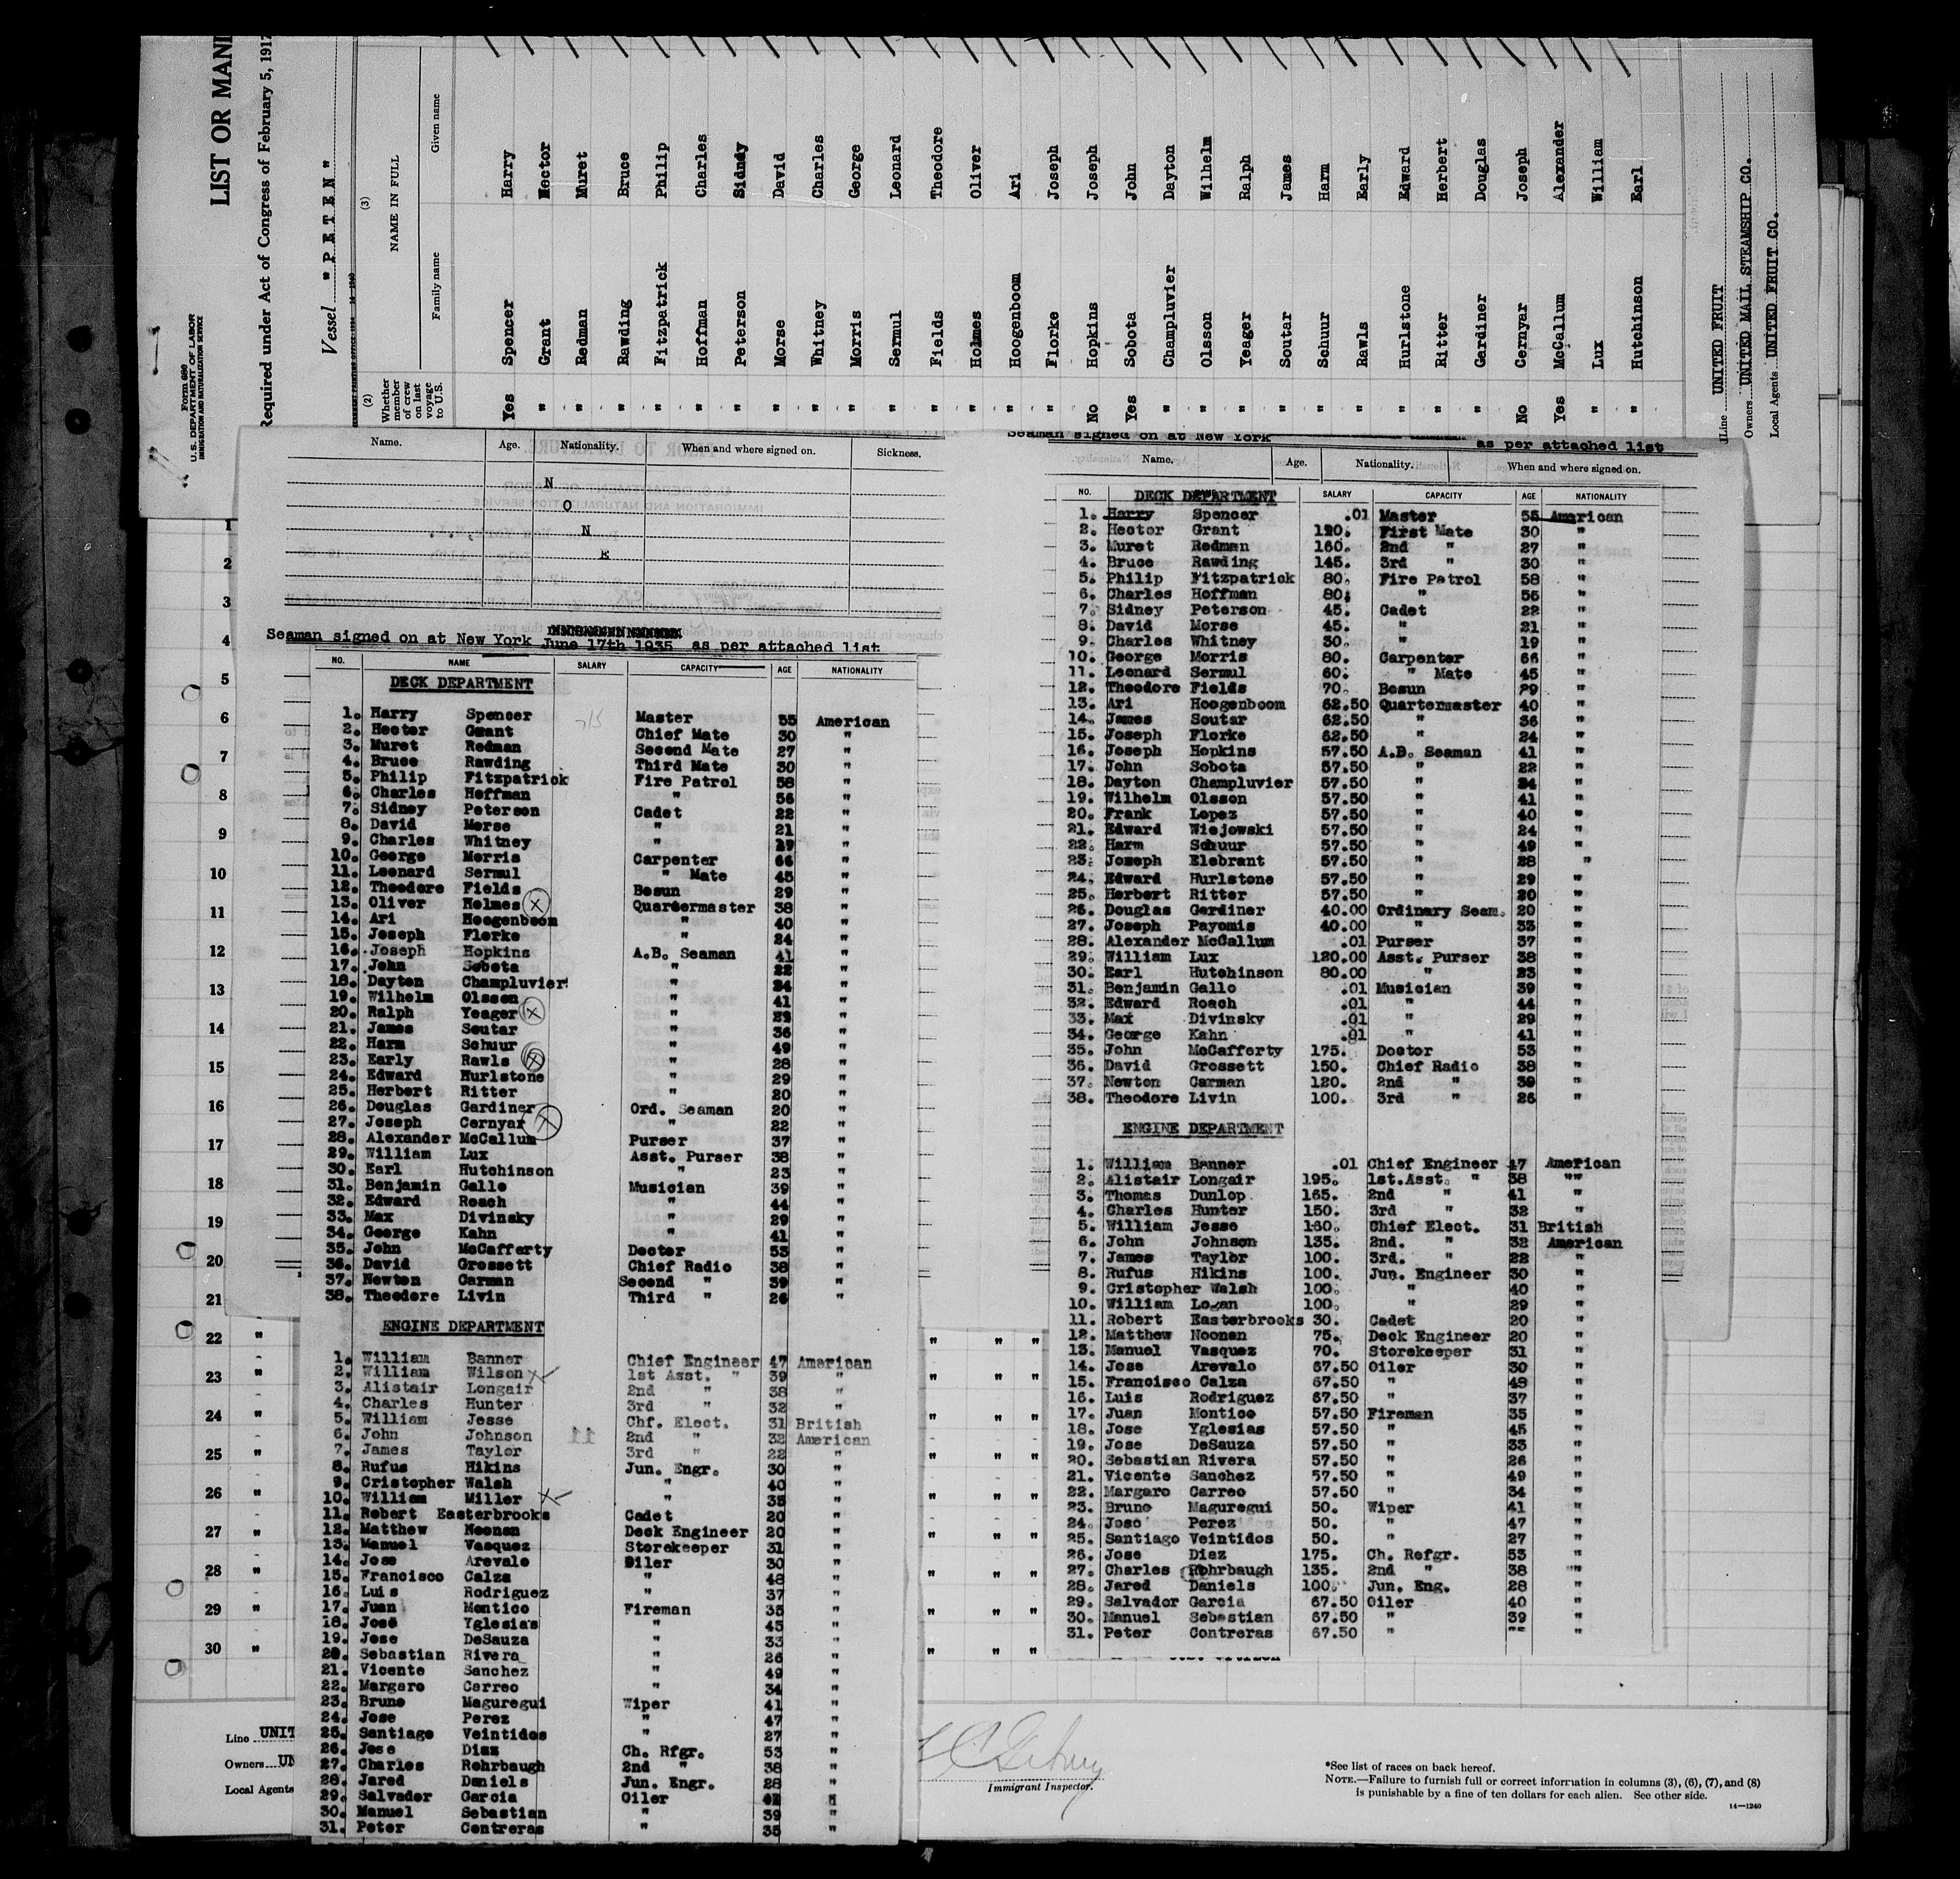 LIST OR MANI
Form 680
U.S. DEPARTMENT OF LABOR
IMMIGRATION AND NATURALIZATION SERVICE
Required under Act of Congress of February 5, 1917
Vessel " P E T E N "
(2) (3)
Whether member of crew on last voyage to U.S. NAME IN FULL
Family name Given name
Yes Spencer Harry
" Grant Hector
" Redman Muret
" Rawding Bruce
" Fitzpatrick Philip
" Hoffman Charles
" Peterson Sidndy
" Morse David
" Whitney Charles
" Morris George
" Sermul Leonard
" Fields Theodore
" Holmes Oliver
" Hoogenboom Ari
" Florke Joseph
No Hopkins Joseph
Yes Sobota John
" Champluvier Dayton
" Olsson Wilhelm
" Yeager Ralph
" Soutar James
" Schuur Harm
" Rawls Early
" Hurlstone Edward
" Ritter Herbert
" Gardiner Douglas
No Cernyar Joseph
Yes McCallum Alexander
" Lux William
" Hutchinson Earl
Line UNITED FRUIT
Owners UNITED MAIL STEAMSHIP CO.
Local Agents UNITED FRUIT CO.
Name. Age. Nationality. When and where signed on. Sickness.
N
O
N
E
Seaman signed on at New York June 17th 1935 as per attached list
NO. NAME SALARY CAPACITY AGE NATIONALITY
DECK DEPARTMENT
1. Harry Spencer Master 55 American
2. Hector Grant Chief Mate 30 "
3. Muret Redman Second Mate 27 "
4. Bruce Rawding Third Mate 30 "
5. Philip Fitzpatrick Fire Patrol 58 "
6. Charles Hoffman " 56 "
7. Sidney Peterson Cadet 22 "
8. David Morse " 21 "
9. Charles Whitney " 19 "
10. George Morris Carpenter 66 "
11. Leonard Sermul " Mate 45 "
12. Theodore Fields Bosun 29 "
13. Oliver Holmes Quartermaster 38 "
14. Ari Hoogenboom " 40 "
15. Joseph Florke " 24 "
16. Joseph Hopkins A.B. Seaman 41 "
17. John Sobota " 22 "
18. Dayton Champluvier " 24 "
19. Wilhelm Olsson " 41 "
20. Ralph Yeager " "
21. James Soutar " 36 "
22. Harm Schuur " 49 "
23. Early Rawls " 28 "
24. Edward Hurlstone " 29 "
25. Herbert Ritter " 20 "
26. Douglas Gardiner Ord. Seaman 20 "
27. Joseph Cernyar " 22 "
28. Alexander McCallum Purser 37 "
29. William Lux Asst. Purser 38 "
30. Earl Hutchinson " 23 "
31. Benjamin Gallo Musician 39 "
32. Edward Roach " 44 "
33. Max Divinsky " 29 "
34. George Kahn " 41 "
35. John McCafferty Doctor 53 "
36. David Grossett Chief Radio 38 "
37. Newton Carman Second " 39 "
38. Theodore Livin Third " 26 "
ENGINE DEPARTMENT
1. William Banner Chief Engineer 47 American
2. William Wilson 1st Asst. " 39 "
3. Alistair Longair 2nd " 38 "
4. Charles Hunter 3rd " 32 "
5. William Jesse Chf. Elect. 31 British
6. John Johnson 2nd " 32 American
7. James Taylor 3rd " 22 "
8. Rufus Hikins Jun. Engr. 30 "
9. Cristopher Walsh " 40 "
10. William Miller " 35 "
11. Robert Easterbrooks Cadet 20 "
12. Matthew Noonan Deck Engineer 20 "
13. Manuel Vasquez Storekeeper 31 "
14. Jose Arevalo Oiler 30 "
15. Francisco Calza " 48 "
16. Luis Rodriguez " 37 "
17. Juan Montico Fireman 35 "
18. Jose Yglesias " 45 "
19. Jose DeSauza " 33 "
20. Sebastian Rivera " 26 "
21. Vicente Sanchez " 49 "
22. Margaro Carreo " 34 "
23. Bruno Maguregui Wiper 41 "
24. Jose Perez " 47 "
25. Santiago Veintidos " 27 "
26. Jose Diaz Ch. Rfgr. 53 "
27. Charles Rohrbaugh 2nd " 38 "
28. Jared Daniels Jun. Engr. 28 "
29. Salvador Garcia Oiler "
30. Manuel Sebastian " 39 "
31. Peter Contreras " 35 "
Seaman signed on at New York as per attached list
Name. Age. Nationality. When and where signed on.
NO. SALARY CAPACITY AGE NATIONALITY
DECK DEPARTMENT
1. Harry Spencer .01 Master 55 American
2. Hector Grant 190. First Mate 30 "
3. Muret Redman 160. 2nd " 27 "
4. Bruce Rawding 145. 3rd " 30 "
5. Philip Fitzpatrick 80. Fire Patrol 58 "
6. Charles Hoffman 80. " 56 "
7. Sidney Peterson 45. Cadet 22 "
8. David Morse 45. " 21 "
9. Charles Whitney 30. " 19 "
10. George Morris 80. Carpenter 66 "
11. Leonard Sermul 60. " Mate 45 "
12. Theodore Fields 70. Bosun 29 "
13. Ari Hoogenboom 62.50 Quartermaster 40 "
14. James Soutar 62.50 " 36 "
15. Joseph Florke 62.50 " 24 "
16. Joseph Hopkins 57.50 A.B. Seaman 41 "
17. John Sobota 57.50 " 22 "
18. Dayton Champluvier 57.50 " 24 "
19. Wilhelm Olsson 57.50 " 41 "
20. Frank Lopez 57.50 " 40 "
21. Edward Wiejowski 57.50 " 24 "
22. Harm Schuur 57.50 " 49 "
23. Joseph Elebrant 57.50 " 28 "
24. Edward Hurlstone 57.50 " 29 "
25. Herbert Ritter 57.50 " 20 "
26. Douglas Gardiner 40.00 Ordinary Seam. 20 "
27. Joseph Payomis 40.00 " 33 "
28. Alexander McCallum .01 Purser 37 "
29. William Lux 120.00 Asst. Purser 38 "
30. Earl Hutchinson 80.00 " 23 "
31. Benjamin Gallo .01 Musician 39 "
32. Edward Roach .01 " 44 "
33. Max Divinsky .01 " 29 "
34. George Kahn .01 " 41 "
35. John McCafferty 175. Doctor 53 "
36. David Grossett 150. Chief Radio 38 "
37. Newton Carman 120. 2nd " 39 "
38. Theodore Livin 100. 3rd " 26 "
ENGINE DEPARTMENT
1. William Banner .01 Chief Engineer 47 American
2. Alistair Longair 195. 1st.Asst. " 38 ""
3. Thomas Dunlop 165. 2nd " 41 "
4. Charles Hunter 150. 3rd " 32 "
5. William Jesse 160. Chief Elect. 31 British
6. John Johnson 135. 2nd. " 32 American
7. James Taylor 100. 3rd. " 22 "
8. Rufus Hikins 100. Jun. Engineer 30 "
9. Cristopher Walsh 100. " 40 "
10. William Logan 100. " 29 "
11. Robert Easterbrooks 30. Cadet 20 "
12. Matthew Noonan 75. Deck Engineer 20 "
13. Manuel Vasquez 70. Storekeeper 31 "
14. Jose Arevalo 67.50 Oiler 30 "
15. Francisco Calza 67.50 " 48 "
16. Luis Rodriguez 67.50 " 37 "
17. Juan Montico 57.50 Fireman 35 "
18. Jose Yglesias 57.50 " 45 "
19. Jose DeSauza 57.50 " 33 "
20. Sebastian Rivera 57.50 " 26 "
21. Vicente Sanchez 57.50 " 49 "
22. Margaro Carreo 57.50 " 34 "
23. Bruno Maguregui 50. Wiper 41 "
24. Jose Perez 50. " 47 "
25. Santiago Veintidos 50. " 27 "
26. Jose Diaz 175. Ch. Refgr. 53 "
27. Charles Rohrbaugh 135. 2nd " 38 "
28. Jared Daniels 100. Jun. Eng. 28 "
29. Salvador Garcia 67.50 Oiler 40 "
30. Manuel Sebastian 67.50 " 39 "
31. Peter Contreras 67.50 " -- "
1
2
3
4
5
6
7
8
9
10
11
12
13
14
15
16
17
18
19
20
21
22 " " " "
23 " " " "
24 " " " "
25 " " " "
26 " " " "
27 " " " "
28 " " " "
29 " " " "
30 " " " "
Line UNIT
Owners UN
Local Agents
Immigrant Inspector.
*See list of races on back hereof.
NOTE.—Failure to furnish full or correct information in columns (3), (6), (7), and (8)
is punishable by a fine of ten dollars for each alien. See other side.
14—1240